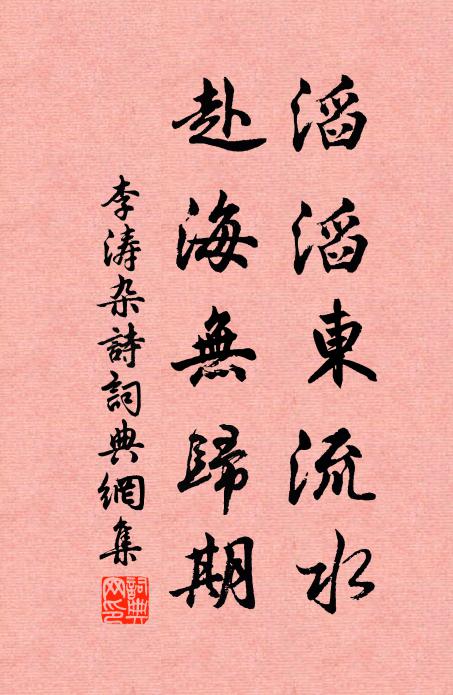 滔滔東流水
赴海無歸期
李涛杂詩詞典網集
詞典网印